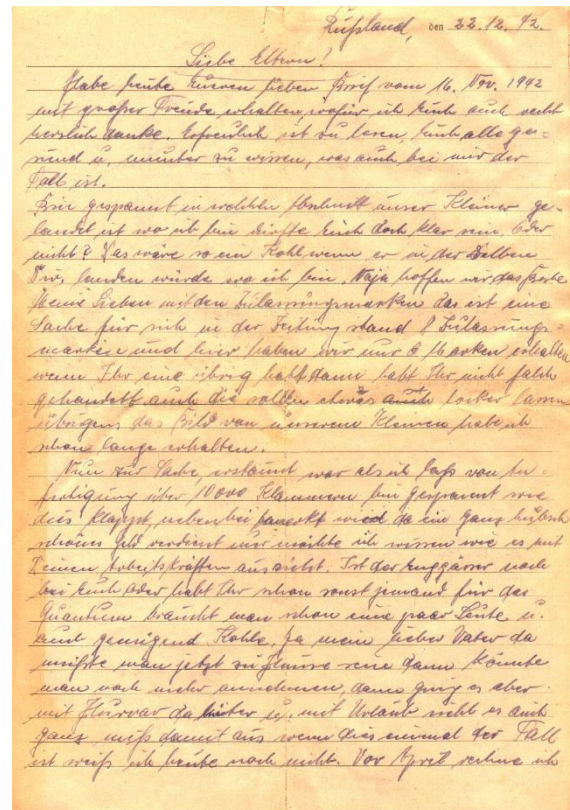 Rußland, den 22.12.42.
Liebe Eltern!
Habe heute Eueren lieben Brief vom 16. Nov. 1942
mit großer Freude erhalten, wofür ich Euch auch recht
herzlich danke. Erfreulich ist zu lesen, Euch alle ge=
sund u. munter zu wissen, was auch bei mir der
Fall ist.
Bin gespannt in welchen Abschnitt unser Kleiner ge=
landet ist wo ich bin dürfte Euch doch klar sein. Oder
nicht? Das wäre so ein Kohl wenn er in der Selben
Div. landen würde wo ich bin. Naja hoffen wir das Beste
Meine Lieben mit den Zulassungsmarken das ist eine
Sache für sich in der Zeitung stand 8 Zulassungs=
marken und hier haben wir nur 6 Marken erhalten
wenn Ihr eine übrig habt dann habt Ihr nicht falsch
gehandelt auch die sollen etwas locker lassen
übrigens das Bild von unserem Kleinen habe ich
schon lange erhalten.
Nun zur Sache, erstaunt war als ich laß von An=
fertigung über 10000 Klammern bin gespannt wie
dies klappt, nebenbei bemerkt wird da ein ganz hübsch
schönes Geld verdient nur möchte ich wissen wie es mit
Deinen Arbeitskräften aussieht. Ist der noch
bei Euch oder habt Ihr schon sonst jemand für das
Quantum braucht man schon eine paar Leute u.
auch genügend Kohle. Ja mein lieber Vater da
müßte man jetzt zu Hause sein dann könnte
man noch mehr annehmen, dann ging es aber
mit Hurra dahinter u. mit Urlaub sieht es auch
ganz damit aus wenn dies einmal der Fall
ist weiß ich heute noch nicht. Vor April rechne ich